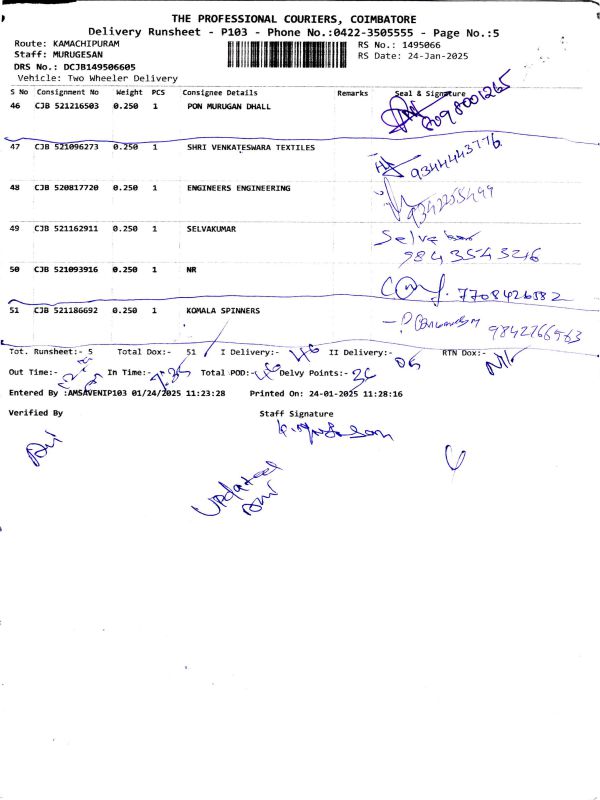 THE PROFESSIONAL COURIERS, COIMBATORE
Delivery Runsheet - P103 - Phone No.:0422-3505555 - Page No.:5
Route: KAMACHIPURAM RS No.: 1495066
Staff: MURUGESAN RS Date: 24-Jan-2025
DRS No.: DCJB149506605
Vehicle: Two Wheeler Delivery
S No Consignment No Weight PCS Consignee Details Remarks Seal & Signature
46 CJB 521216503 0.250 1 PON MURUGAN DHALL
8098001265
47 CJB 521096273 0.250 1 SHRI VENKATESWARA TEXTILES
9344443776
48 CJB 520817720 0.250 1 ENGINEERS ENGINEERING
9342255499
49 CJB 521162911 0.250 1 SELVAKUMAR
9843543216
50 CJB 521093916 0.250 1 NR
7708426582
51 CJB 521186692 0.250 1 KOMALA SPINNERS
9842766563
Tot. Runsheet:- 5 Total Dox:- 51 I Delivery:- 46 II Delivery:- 05 RTN Dox:- Nil
Out Time:- In Time:- 7:35 Total POD:- 46 Delvy Points:- 36
Entered By :AMSAVENIP103 01/24/2025 11:23:28 Printed On: 24-01-2025 11:28:16
Verified By Staff Signature
Updated